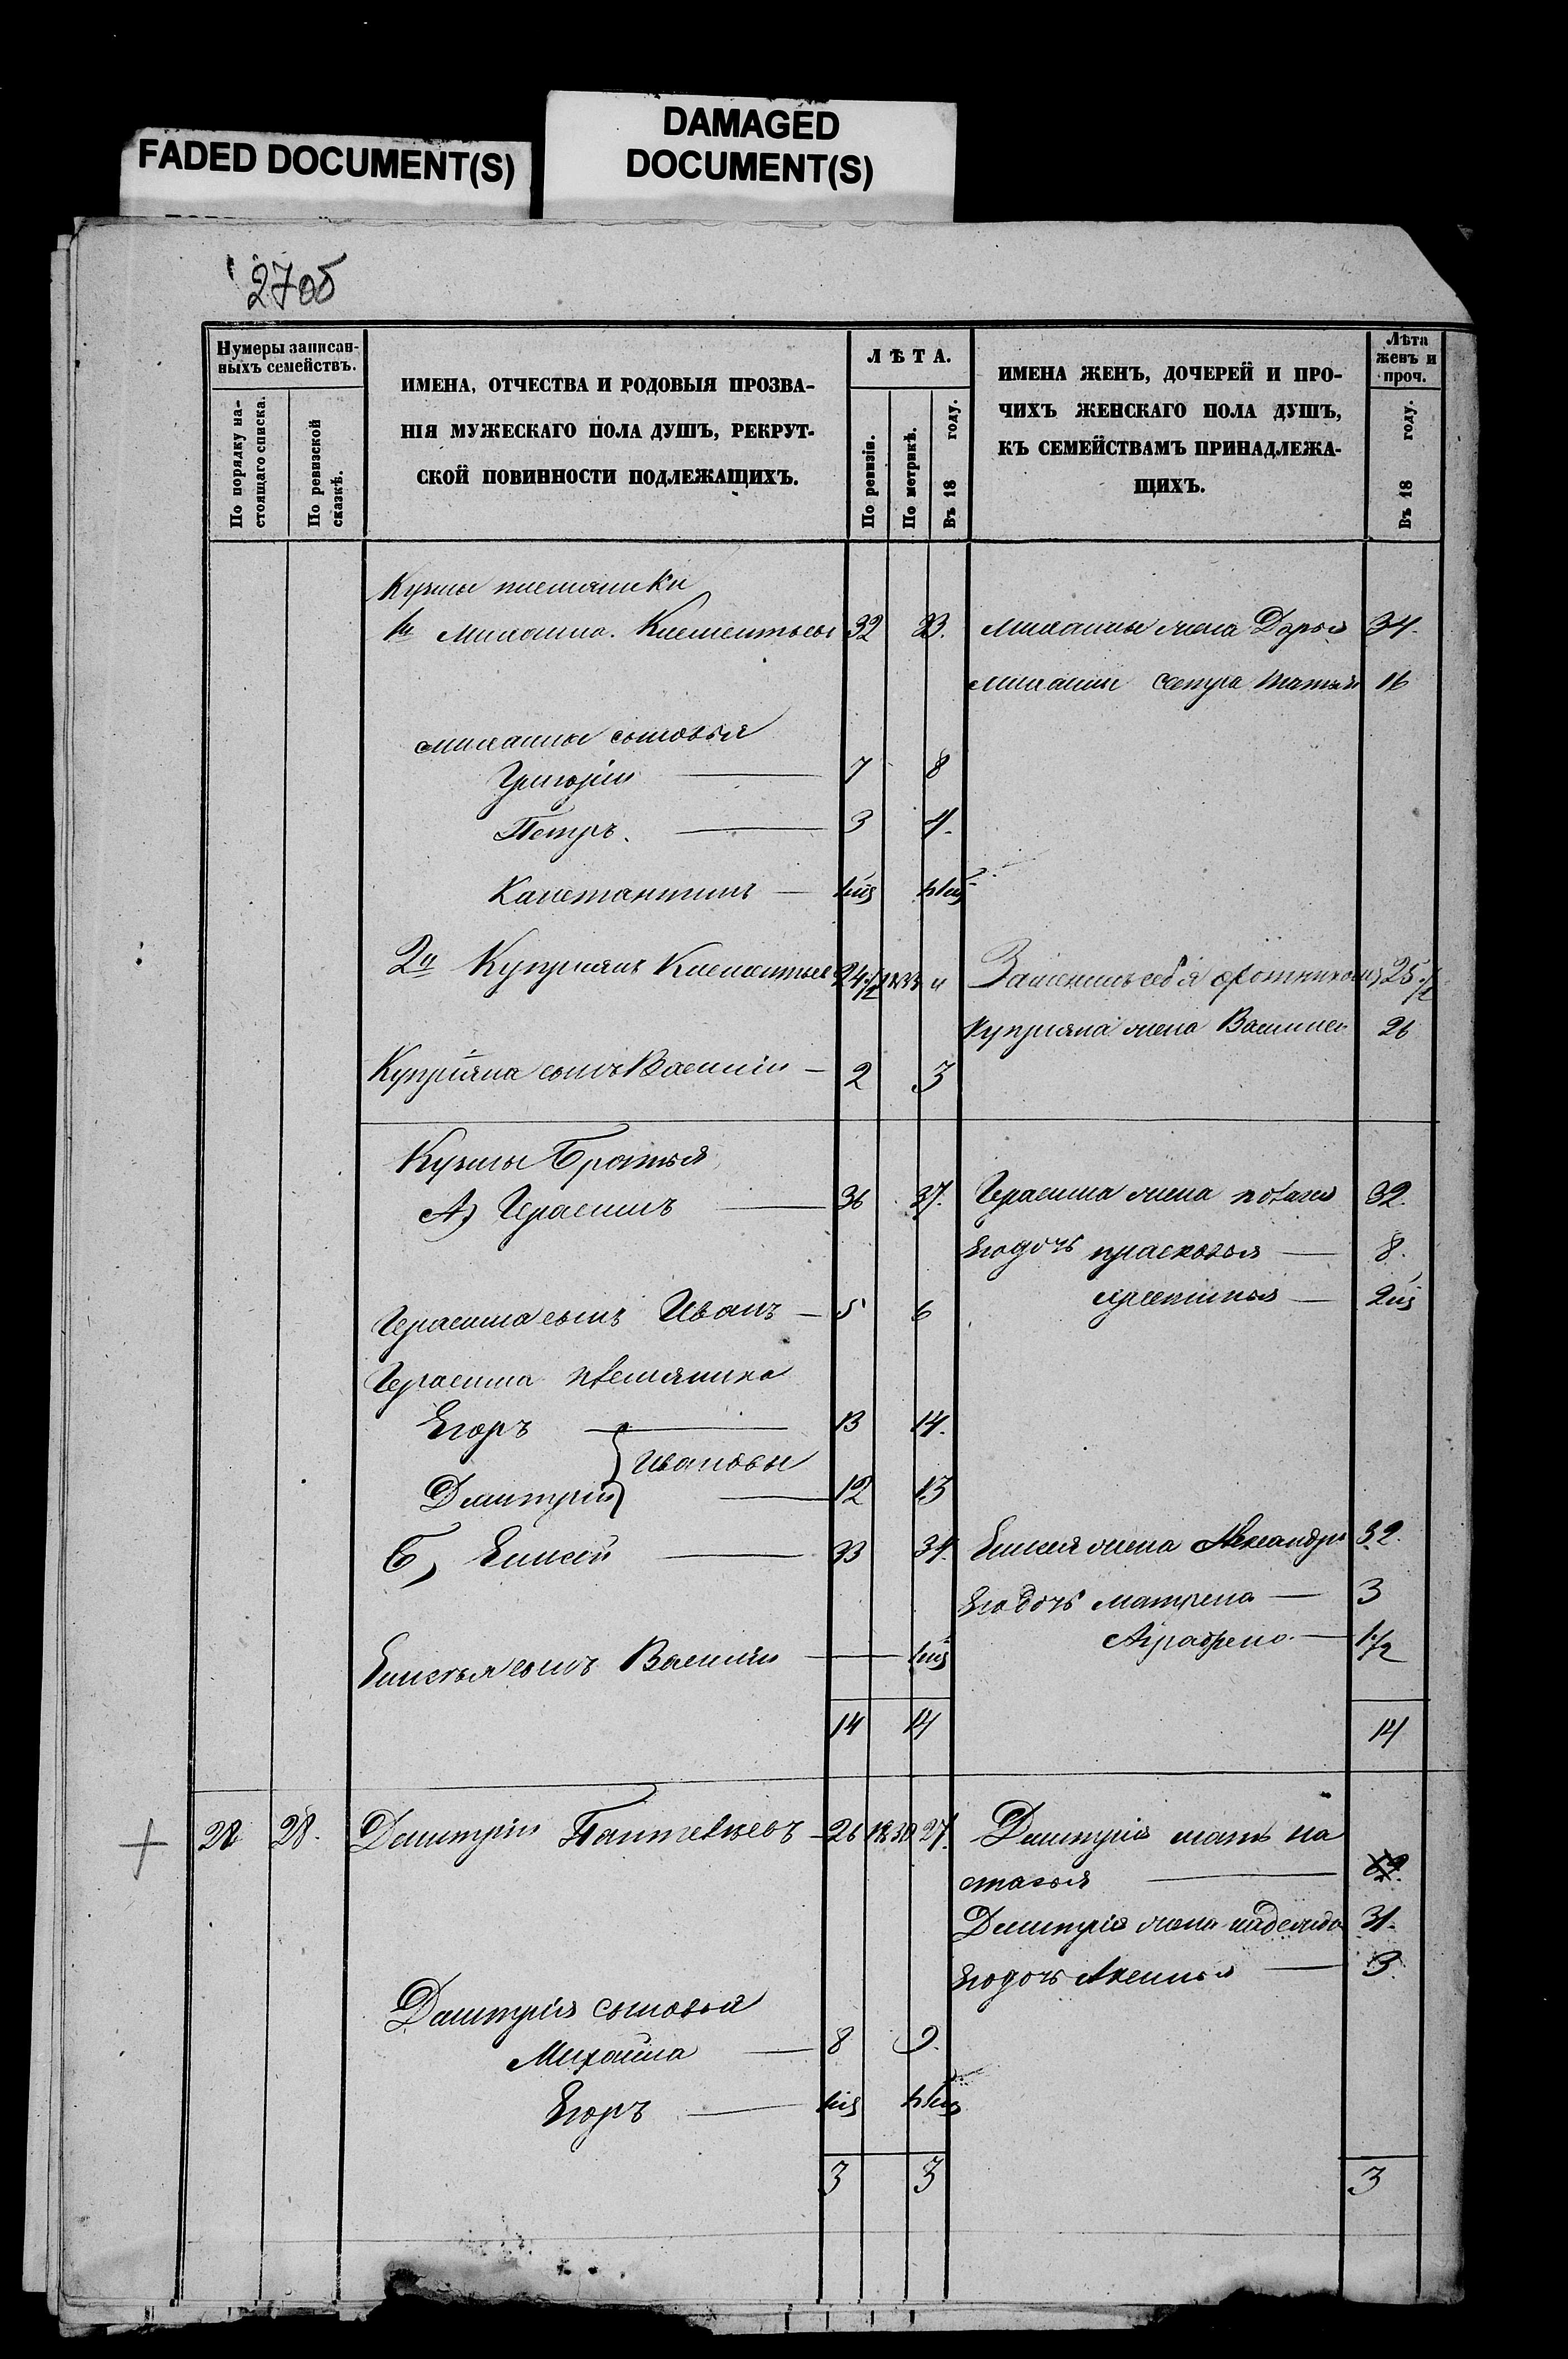 FADED DOCUMENT(S)
DAMAGED
DOCUMENT(S)
27об
Нумеры записан-
ныхъ семействъ.
По порядку на-
стоящаго списка.
По ревизской
сказкѣ.
ИМЕНА, ОТЧЕСТВА И РОДОВЫЯ ПРОЗВА-
НІЯ МУЖЕСКАГО ПОЛА ДУШЪ, РЕКРУТ-
СКОЙ ПОВИННОСТИ ПОДЛЕЖАЩИХЪ.
ЛѢТА.
По ревизіи.
По метрикѣ.
Въ 18 году.
ИМЕНА ЖЕНЪ, ДОЧЕРЕЙ И ПРО-
ЧИХЪ ЖЕНСКАГО ПОЛА ДУШЪ,
КЪ СЕМЕЙСТВАМЪ ПРИНАДЛЕЖА-
ЩИХЪ.
Лѣта
женъ и
проч.
Въ 18 году.
Кузмы племянники
1й Михаила Клементьевъ 32 33. Михаилы жена Дарья 34.
Михаилы сестра Татьяна 16
Михаилы сыновья
Григорій 7 8
Петръ. 3 4.
Канстантинъ
2й Купріянъ Клементьевъ 24 1/2 1833 Заменилъ себя охотникомъ 25 1/2
Купріяна жена Василиса 26
Купріяна сынъ Василій 2 3
Кузмы Братья
А) Герасимъ 36 37. Герасима жена Пелагея 32.
Его дочь Прасковья 8.
Герасима сынъ Иванъ 5 6
Герасима племянника
Егоръ 13 14.
Ивановы
Дмитрій 12 13
Б) Елисей 33 34. Елисея жена Александра 32.
Его дочь Матрена 3
Аграфена 1 1/2
Елисея сынъ Василій
14 14 14
28 28. Дмитрій Пантелѣевъ 26 27. Дмитрія мать На
стасья
Дмитрія жена Надежда 31.
Его дочь Аксинья 3.
Дмитрія сыновья
Михаила 8 9.
Егоръ
3 3 3